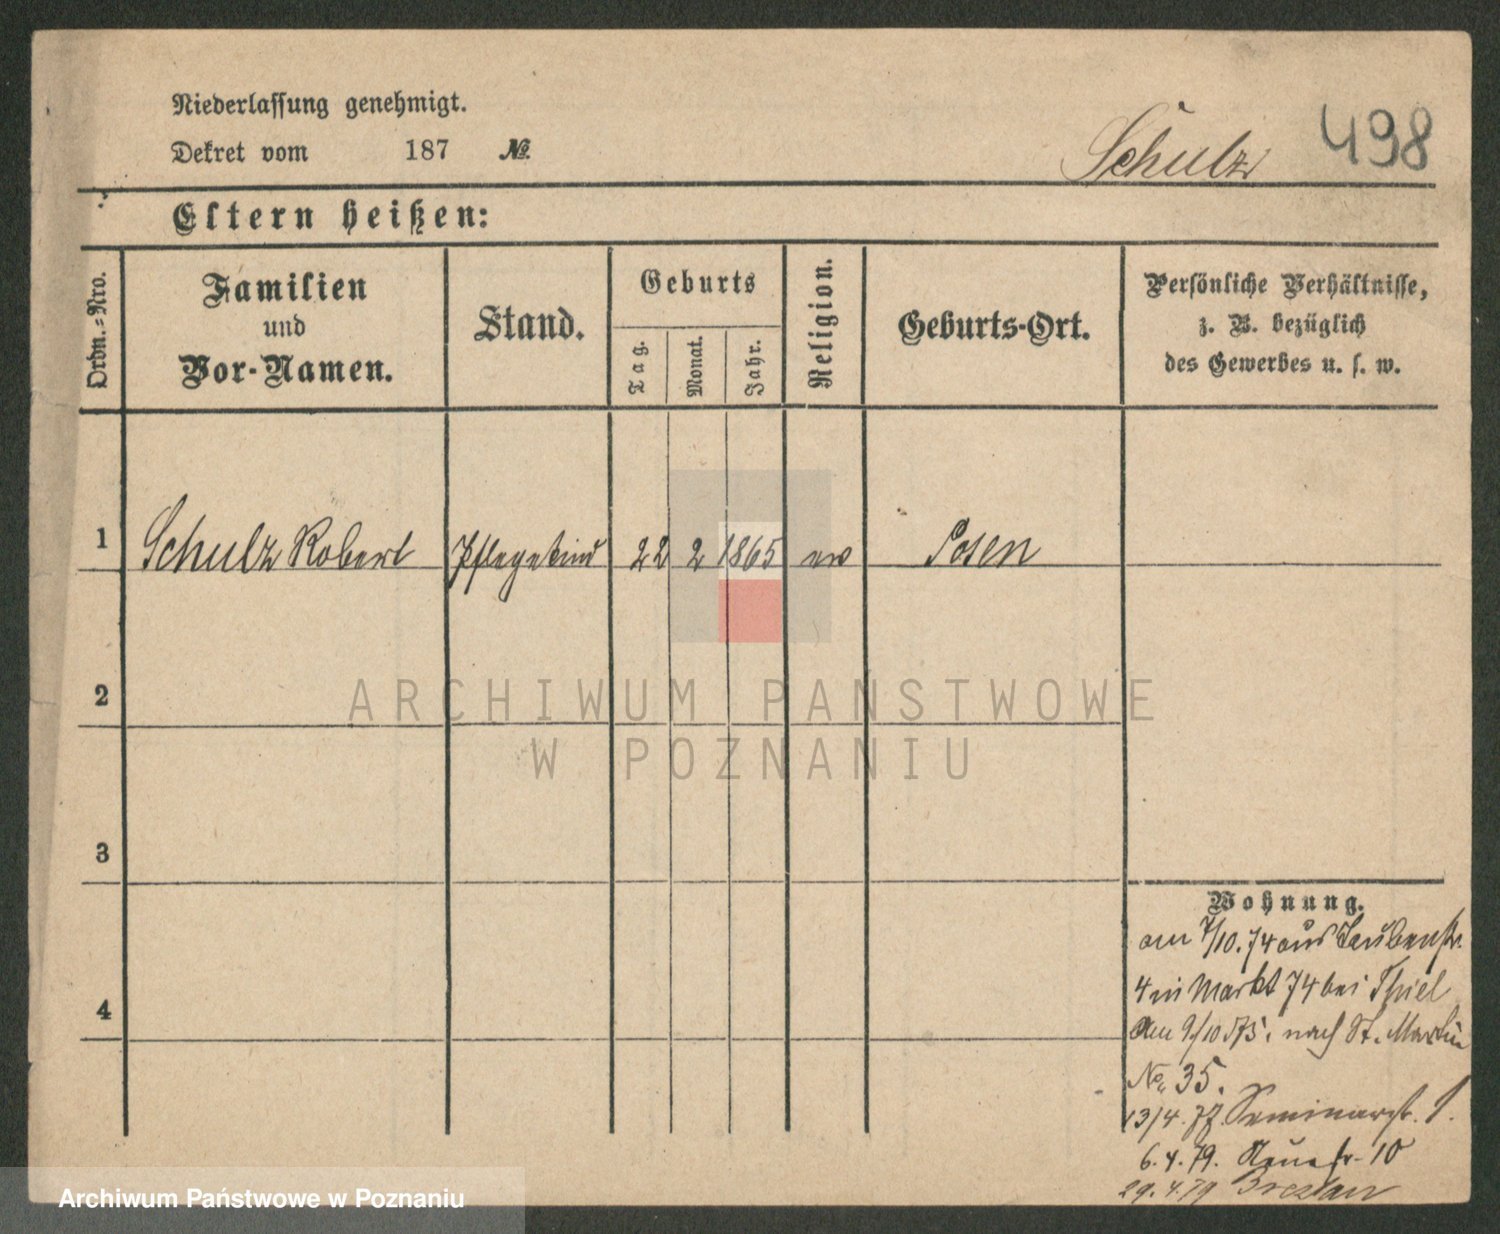 Niederlassung genehmigt.
Dekret vom 187 No.
Schulz 498
Eltern heißen:
Ordn.=Nro.
Familien
und
Vor-Namen.
Stand.
Geburts
Tag.
Monat.
Jahr.
Religion.
Geburts-Ort.
Persönliche Verhältnisse,
z. B. bezüglich
des Gewerbes u. s. w.
1 Schulz Robert Pflegekind 22 2 1865 ev Posen
2
ARCHIWUM PAŃSTWOWE
W POZNANIU
3
4
Wohnung.
am 7/10.74 aus Taubenstr.
4 in Markt 74 bei Thiel
Am 9/10 75. nach St. Martin
No. 35.
13/4.77. Seminarstr. 1.
6.4.79. Neuestr. 10
29.4.79 Breslau
Archiwum Państwowe w Poznaniu